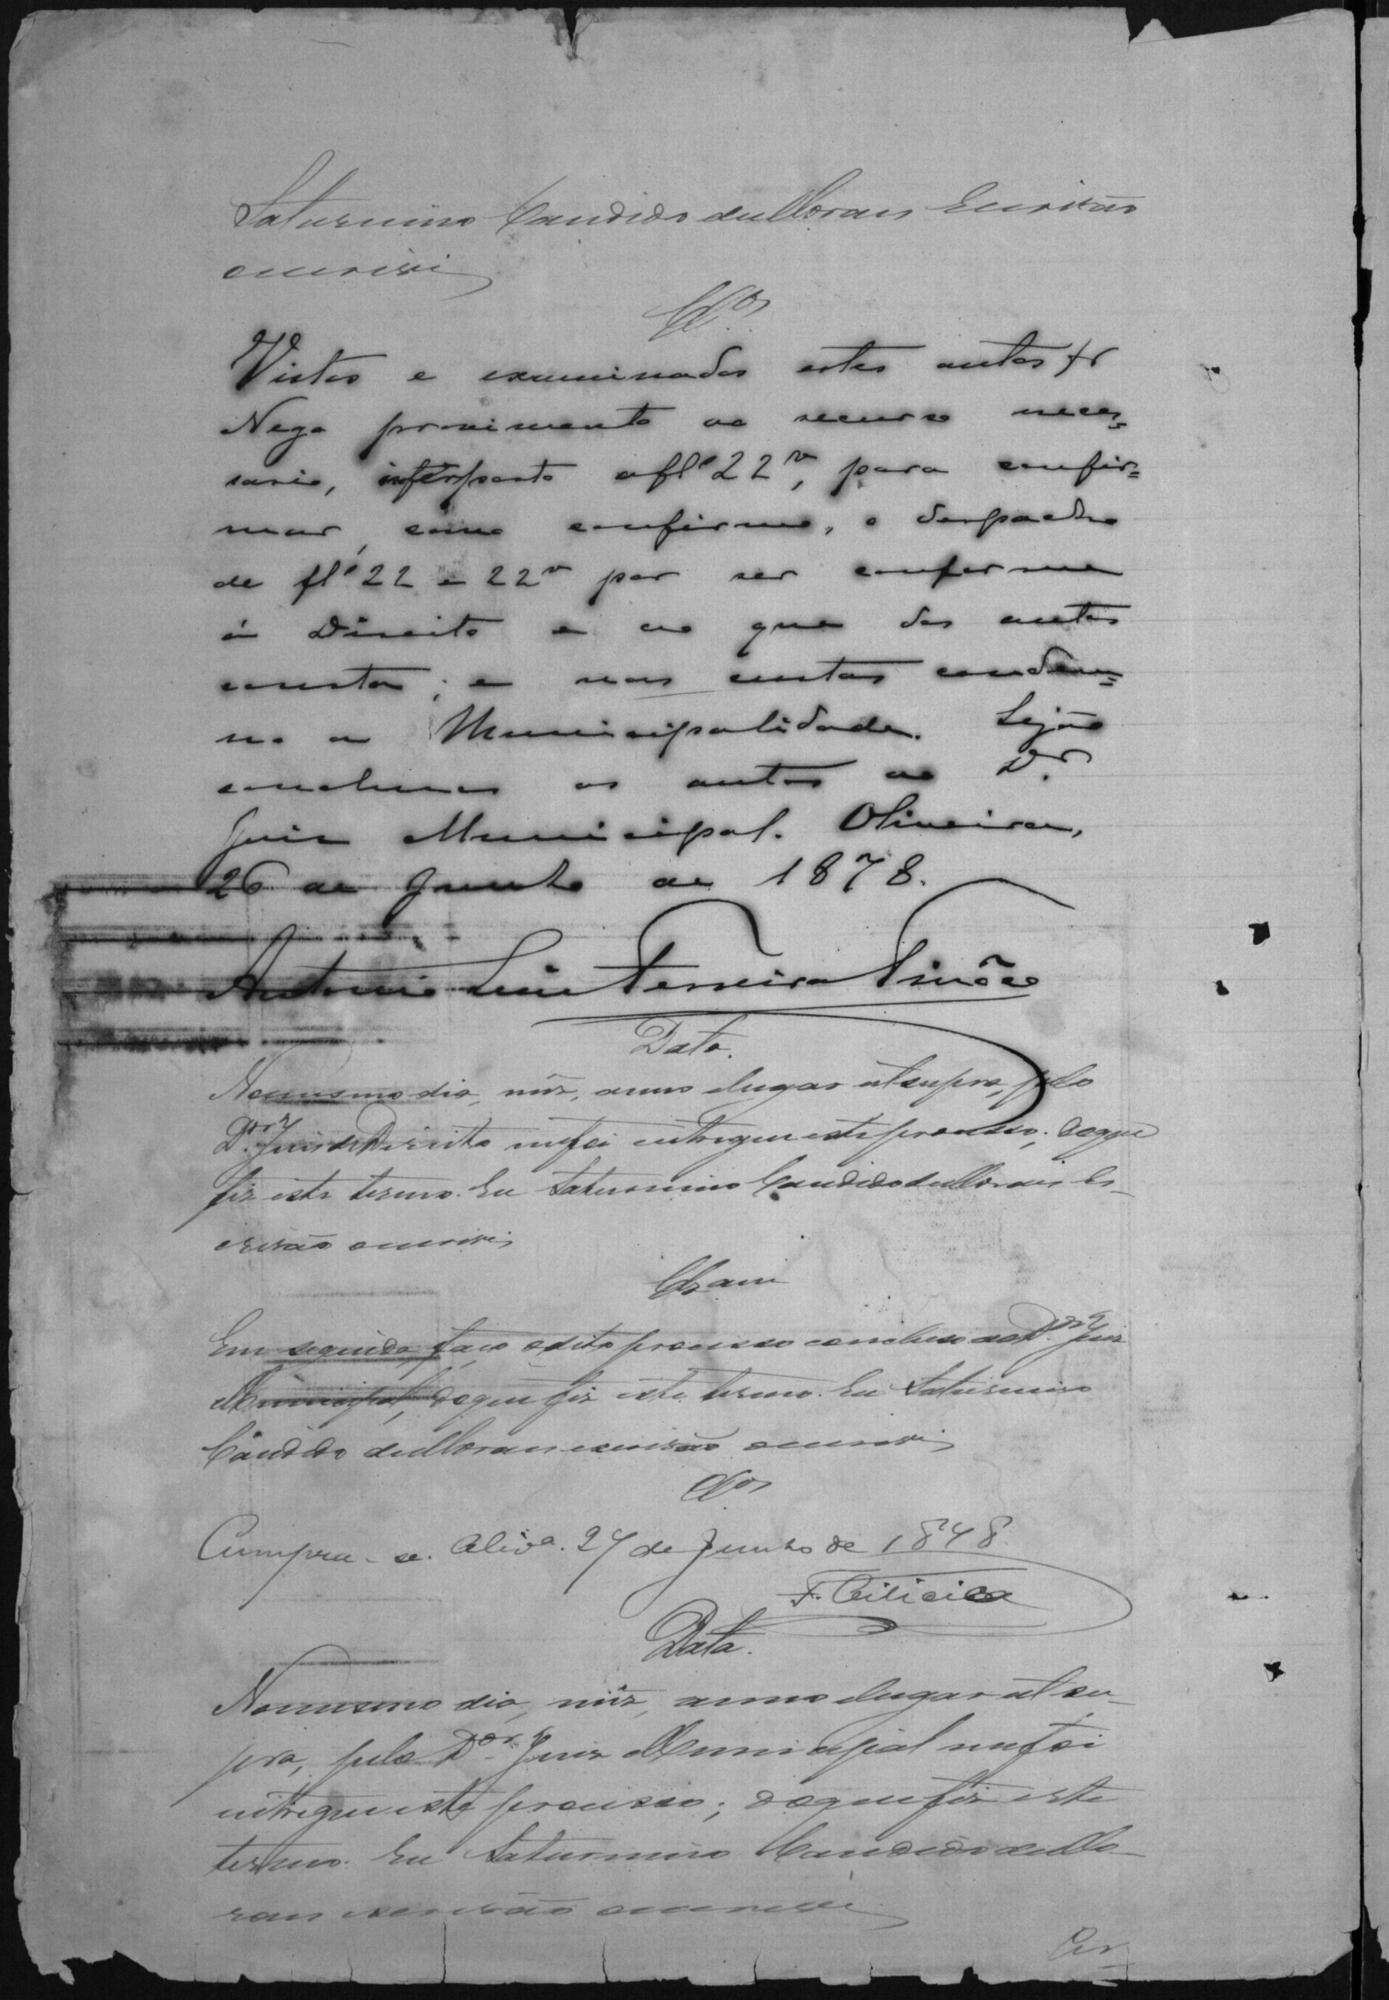 Saturnino Candido de Moraes Escrivão
o escrivi
Cl.os
Vistos e examinados estes autos
Nego provimento ao recurso neces=
sario, interposto a fl. 22v, para confir=
mar, como confirmo, o despacho
de fl. 22 e 22v por ser conforme
á Direito e ao que dos autos
consta; e nas custas condem=
no a Municipalidade. Sejão
conclusos os autos ao Dr.
Juiz Municipal. Oliveira,
26 de Junho de 1878.
Antonio Luiz Ferreira Tinôco
Data.
No mesmo dia, mez, anno e lugar ut supra, pelo
Dor. Juiz de Direito me foi entregue este processo; do que
fiz este termo. Eu Saturnino Candido de Moraes Es-
crivão o escrivi
Clzam
Em seguida, faço o dito processo concluso ao Dor. Juiz
Municipal, do que fiz este termo. Eu Saturnino
Candido de Moraes escrivão o escrivi
Cl.os
Cumpra-se. Oliva. 27 de Junho de 1878.
Data.
No mesmo dia, mez, anno e lugar ut su-
pra, pelo Dor. Juiz Municipal me foi
entregue este processo; do que fiz este
termo. Eu Saturnino Candido de Mo-
raes escrivão o escrivi